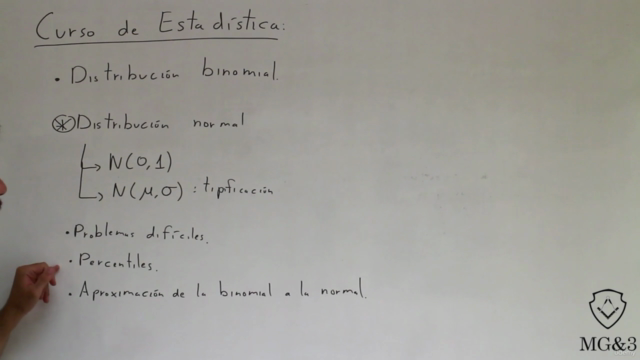 Curso de Estadística:
• Distribución binomial.
* Distribución normal
→ N(0,1)
→ N(μ,σ) : tipificación
• Problemas difíciles.
• Percentiles.
• Aproximación de la binomial a la normal.
MG&3